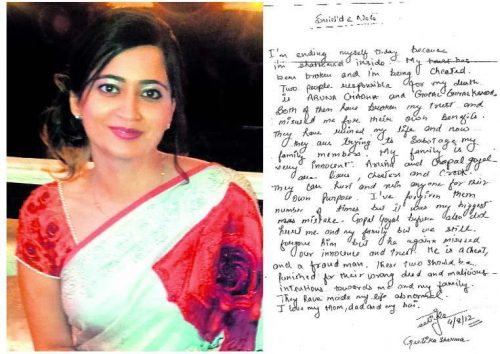 Suicide Note
I'm ending myself today because
i'm shattered inside. My trust has
been broken and I'm being cheated.
Two people responsible for my death
is ARUNA CHADHA and GOPAL GOYAL KANDA.
Both of them have broken my trust and
misused me for their own benefits.
They have ruined my life and now
they are trying to sabotage my
family members. My family is
very innocent. Aruna and Gopal goyal
are liars, cheaters and crook.
They can hurt and ruin anyone for their
own purpose. I've forgiven them
number of times but it was my biggest
mistake. Gopal Goyal before also did
hurt me and my family but we still
forgave him but he again misused
our innocence and trust. He is a cheat,
and a fraud man. These two should be
punished for their wrong deed and malicious
intentions towards me and my family.
They have made my life abnormal.
I love my Mom, dad and my bai.
4/8/12
Geetika Sharma